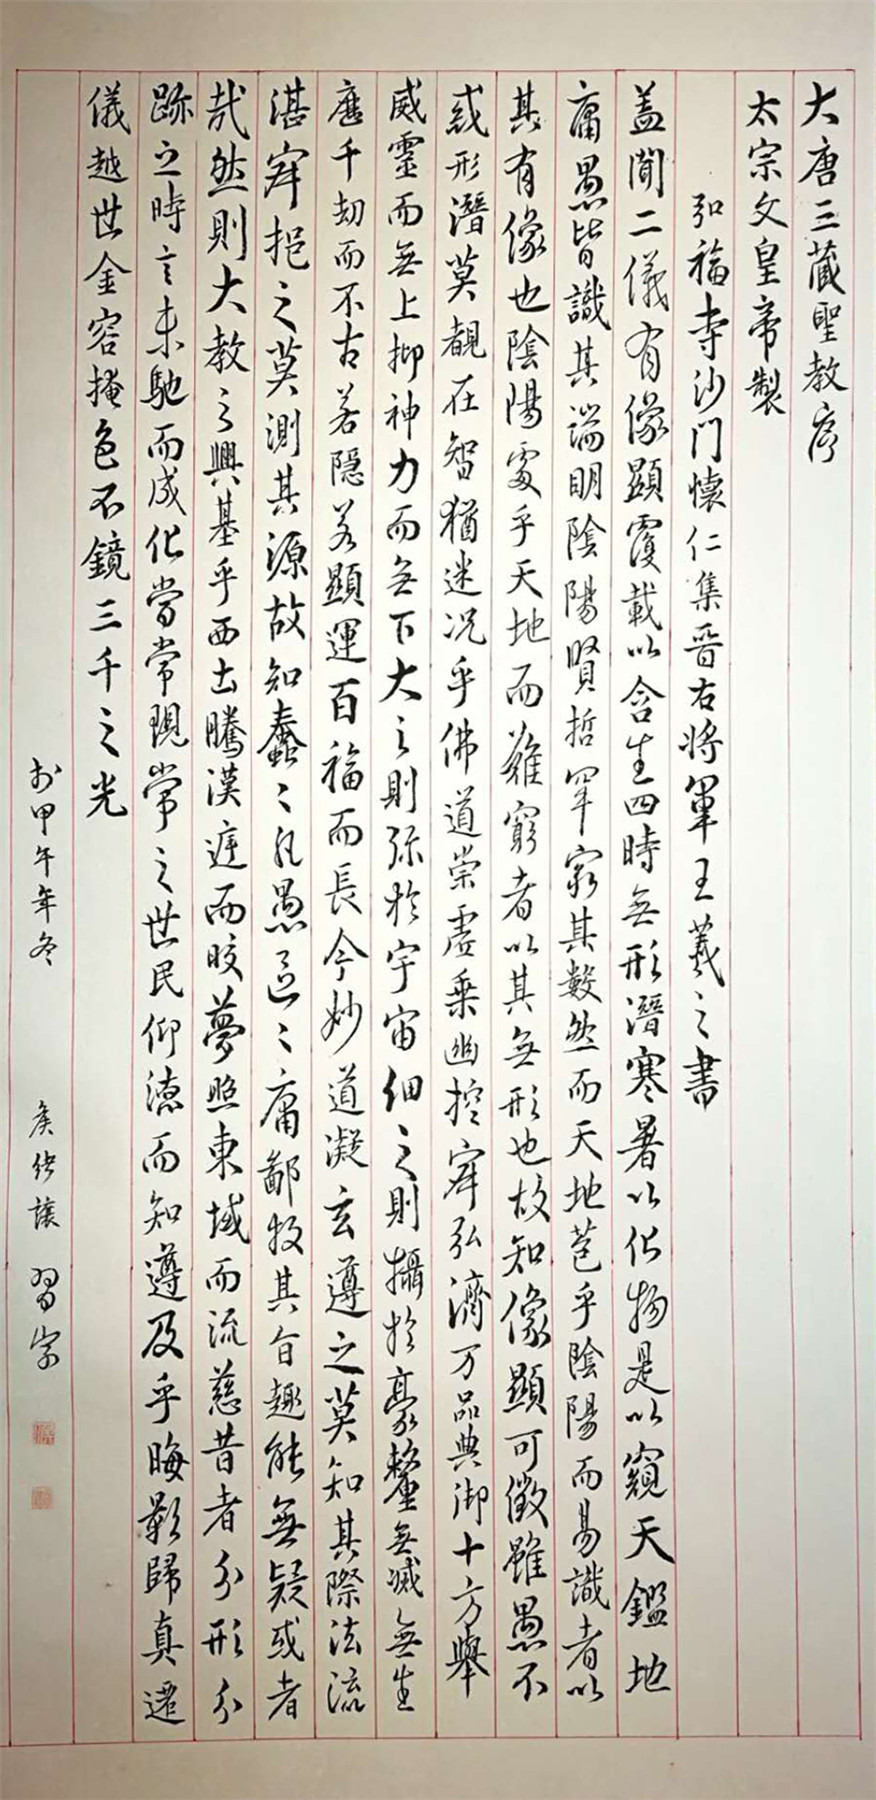 大唐三藏聖教序
太宗文皇帝製
弘福寺沙門懷仁集晉右將軍王羲之書
蓋聞二儀有像顯覆載以含生四時無形潛寒暑以化物是以窺天鑑地
庸愚皆識其端明陰陽賢哲罕窮其數然而天地苞乎陰陽而易識者以
其有像也陰陽處乎天地而難窮者以其無形也故知像顯可徵雖愚不
惑形潛莫覩在智猶迷况乎佛道崇虛乘幽控寂弘濟万品典御十方舉
威靈而無上抑神力而無下大之則弥於宇宙細之則攝於豪釐無滅無生
歷千劫而不古若隱若顯運百福而長今妙道凝玄遵之莫知其際法流
湛寂挹之莫測其源故知蠢々凡愚區々庸鄙投其旨趣能無疑或者
哉然則大教之興基乎西土騰漢庭而皎夢照東域而流慈昔者分形分
跡之時言未馳而成化當常現常之世民仰德而知遵及乎晦影歸真遷
儀越世金容掩色不鏡三千之光
於甲午年冬
習字